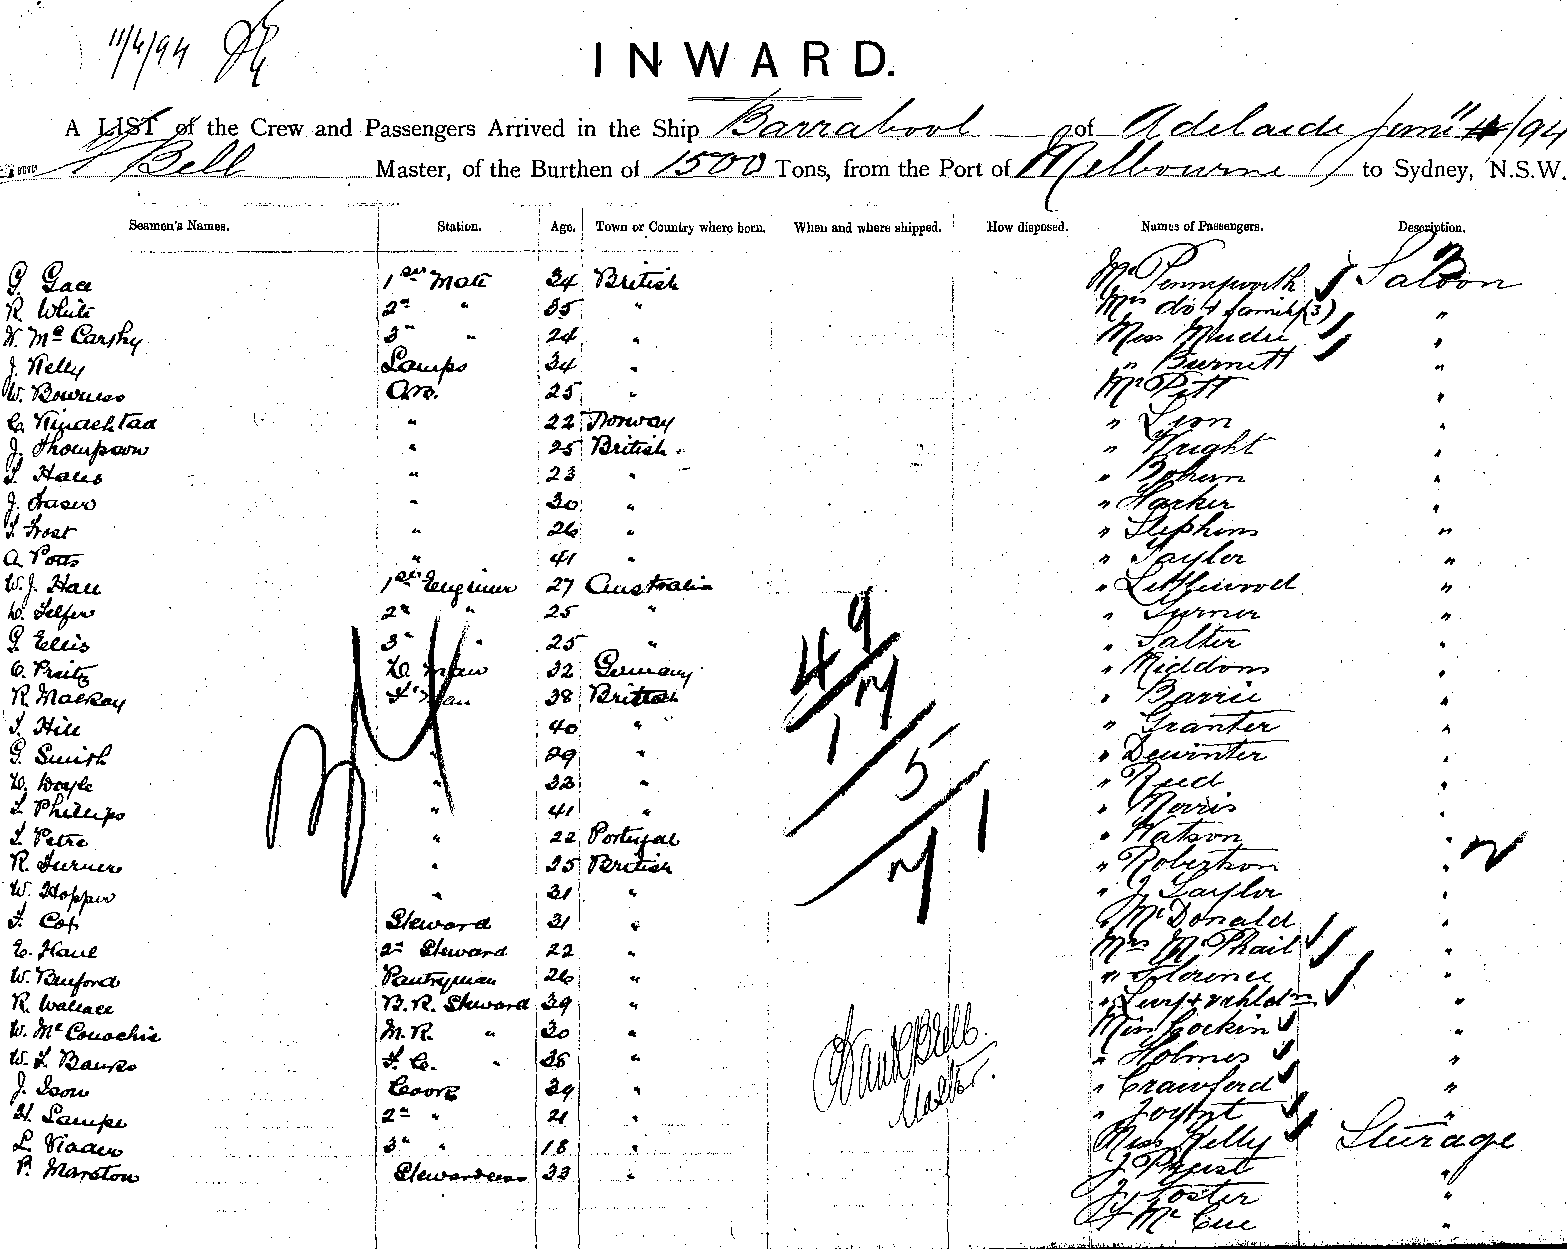 11/6/94
INWARD.
A LIST of the Crew and Passengers Arrived in the Ship Barrabool of Adelaide June 11/94
Bell Master, of the Burthen of 1500 Tons, from the Port of Melbourne to Sydney, N.S.W.
Seamen's Names. Station. Age. Town or Country where born. When and where shipped. How disposed. Names of Passengers. Description.
G. 1st Mate 34 British Mr Pennyworth Saloon
R. White 2" " 35 " Mrs do & family (3) "
W. McCarthy 3" " 24 " Miss "
J. Kelly Lamps 34 " " Burnett "
W. Bowness A.B. 25 " Mr Pitt "
" 22 Norway " Lyon "
J. Thompson " 25 British " Wright "
" 23 " "
J. Fraser " 30 " " Harker "
T. Frost " 26 " " Stephens "
A. Potts " 41 " " Taylor "
W. J. Hall 1st Engineer 27 Australia " Littlewood "
D. Telfer 2" " 25 " " Turner "
G. Ellis 3" " 25 " " Salter "
D. Man 32 Germany " Middons "
R. Mackay F. Man 38 British " Barrie "
T. Hill 40 " " Granter "
G. Smith " 29 " " Dewinter "
D. Doyle " 33 " " Reed "
T. Phillips " 41 " " Morris "
" 22 Portugal " Watson "
R. Turner " 25 British " Robertson "
W. Hopper " 31 " " J. Taylor "
F. Cox Steward 31 " " McDonald "
2" Steward 22 " Mrs McPhail "
W. Pantryman 26 " " Florence "
R. Wallace B.R. Steward 39 " "
W. McConachie M.R. " 30 " Miss Cockin "
W. T. Banks F.C. " 38 " " Holmes "
J. Ison Cook 39 " " Crawford "
H. Lampe 2" " 21 " " Joynt "
3" " 18 " Miss Kelly Steerage
P. Marston Stewardess 33 " J. "
J. Foster
McCue "
49
17
5
71
Bell
Master.